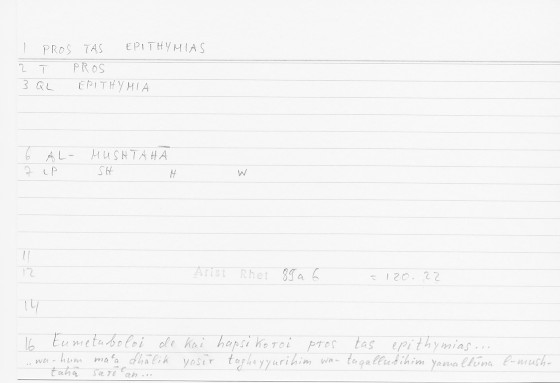 1 PROS TAS EPITHYMIAS
2 T PROS
3 QL EPITHYMIA
6 AL- MUSHTAHĀ
7 LP SH H W
11
12 Arist Rhet 89a 6 = 120.22
14
16 Eumetaboloi de kai hapsikoroi pros tas epithymias...
..wa-hum maʿa dhālik yasīr taghayyurihim wa- taqallubihim yamallūna l-mush-
tahā sarīʿan...